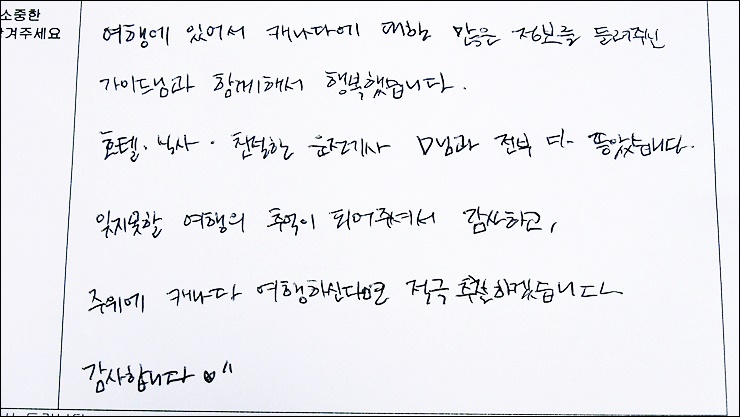 소중한
겨주세요
여행에 있어서 캐나다에 대한 많은 정보를 들려주신
가이드님과 함께해서 행복했습니다.
호텔 · 식사 · 친절한 운전기사 님과 전부 다 좋았습니다.
잊지못할 여행의 추억이 되어주셔서 감사하고,
주위에 캐나다 여행하신다면 적극 추천하겠습니다
감사합니다 ♥"